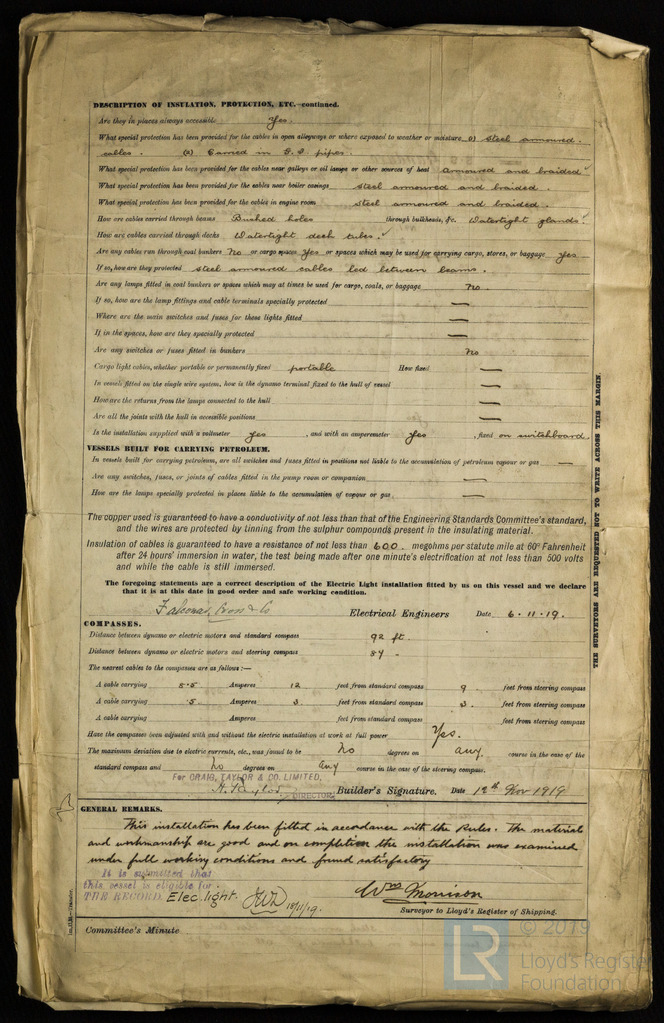 DESCRIPTION OF INSULATION, PROTECTION, ETC.—continued.
Are they in places always accessible Yes.
What special protection has been provided for the cables in open alleyways or where exposed to weather or moisture (1) Steel armoured
cables. (2) Carried in G.I. pipes.
What special protection has been provided for the cables near galleys or oil lamps or other sources of heat Armoured and braided
What special protection has been provided for the cables near boiler casings Steel armoured and braided.
What special protection has been provided for the cables in engine room Steel armoured and braided.
How are cables carried through beams Bushed holes through bulkheads, &c. Watertight glands
How are cables carried through decks Watertight deck tubes.
Are any cables run through coal bunkers No or cargo spaces Yes or spaces which may be used for carrying cargo, stores, or baggage Yes
If so, how are they protected Steel armoured cables led between beams.
Are any lamps fitted in coal bunkers or spaces which may at times be used for cargo, coals, or baggage No.
If so, how are the lamp fittings and cable terminals specially protected —
Where are the main switches and fuses for these lights fitted —
If in the spaces, how are they specially protected —
Are any switches or fuses fitted in bunkers No
Cargo light cables, whether portable or permanently fixed portable How fixed —
In vessels fitted on the single wire system, how is the dynamo terminal fixed to the hull of vessel —
How are the returns from the lamps connected to the hull —
Are all the joints with the hull in accessible positions —
Is the installation supplied with a voltmeter Yes, and with an amperemeter Yes, fixed on switchboard.
VESSELS BUILT FOR CARRYING PETROLEUM.
In vessels built for carrying petroleum, are all switches and fuses fitted in positions not liable to the accumulation of petroleum vapour or gas —
Are any switches, fuses, or joints of cables fitted in the pump room or companion —
How are the lamps specially protected in places liable to the accumulation of vapour or gas —
The copper used is guaranteed to have a conductivity of not less than that of the Engineering Standards Committee's standard,
and the wires are protected by tinning from the sulphur compounds present in the insulating material.
Insulation of cables is guaranteed to have a resistance of not less than 600. megohms per statute mile at 60° Fahrenheit
after 24 hours' immersion in water, the test being made after one minute's electrification at not less than 500 volts
and while the cable is still immersed.
The foregoing statements are a correct description of the Electric Light installation fitted by us on this vessel and we declare
that it is at this date in good order and safe working condition.
Falconar, Cross & Co Electrical Engineers Date 6.11.19.
COMPASSES.
Distance between dynamo or electric motors and standard compass 92 ft.
Distance between dynamo or electric motors and steering compass 87 "
The nearest cables to the compasses are as follows:—
A cable carrying 8.5 Amperes 12 feet from standard compass 9 feet from steering compass
A cable carrying .5 Amperes 3 feet from standard compass 3. feet from steering compass
A cable carrying Amperes feet from standard compass feet from steering compass
Have the compasses been adjusted with and without the electric installation at work at full power Yes.
The maximum deviation due to electric currents, etc., was found to be No degrees on any course in the case of the
standard compass and No degrees on any course in the case of the steering compass.
For CRAIG, TAYLOR & CO. LIMITED,
H. Taylor DIRECTOR Builder's Signature. Date 12th Nov 1919
GENERAL REMARKS.
This installation has been fitted in accordance with the Rules. The material
and workmanship are good and on completion the installation was examined
under full working conditions and found satisfactory
It is submitted that
this vessel is eligible for
THE RECORD. Elec. light. 18/11/19.
Wm Morrison
Surveyor to Lloyd's Register of Shipping.
Committee's Minute
THE SURVEYORS ARE REQUESTED NOT TO WRITE ACROSS THIS MARGIN.
LR
© 2019
Lloyd's Register
Foundation